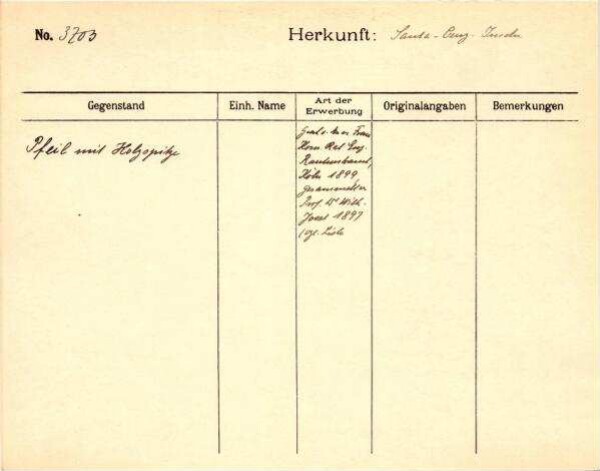 No. 3703
Herkunft: Santa-Cruz-Inseln
Gegenstand
Einh. Name
Art der
Erwerbung
Originalangaben
Bemerkungen
Pfeil mit Holzspitze
Frau
Kom. Rat Eug.
Rautenstrauch,
Köln 1899,
gesammelt v.
Prof. Dr Wilh.
Joest 1897